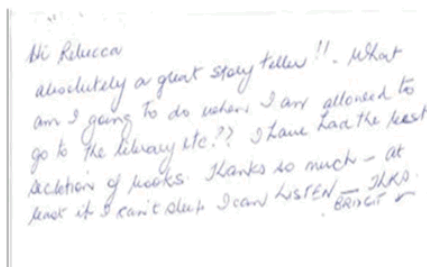 Hi Rebecca
absolutely a great story teller!!. What
am I going to do when I am allowed to
go to the library etc.?? I have had the best
selection of books. Thanks so much – at
least if I can't sleep I can LISTEN – THKS.
BRIDGIT